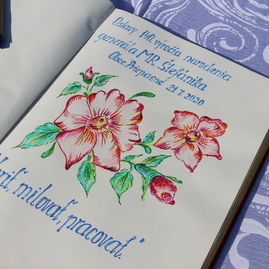 Oslavy 140. výročia narodenia
generála M.R. Štefánika
Obec Prepasné 21.7.2020
milovať, pracovať."